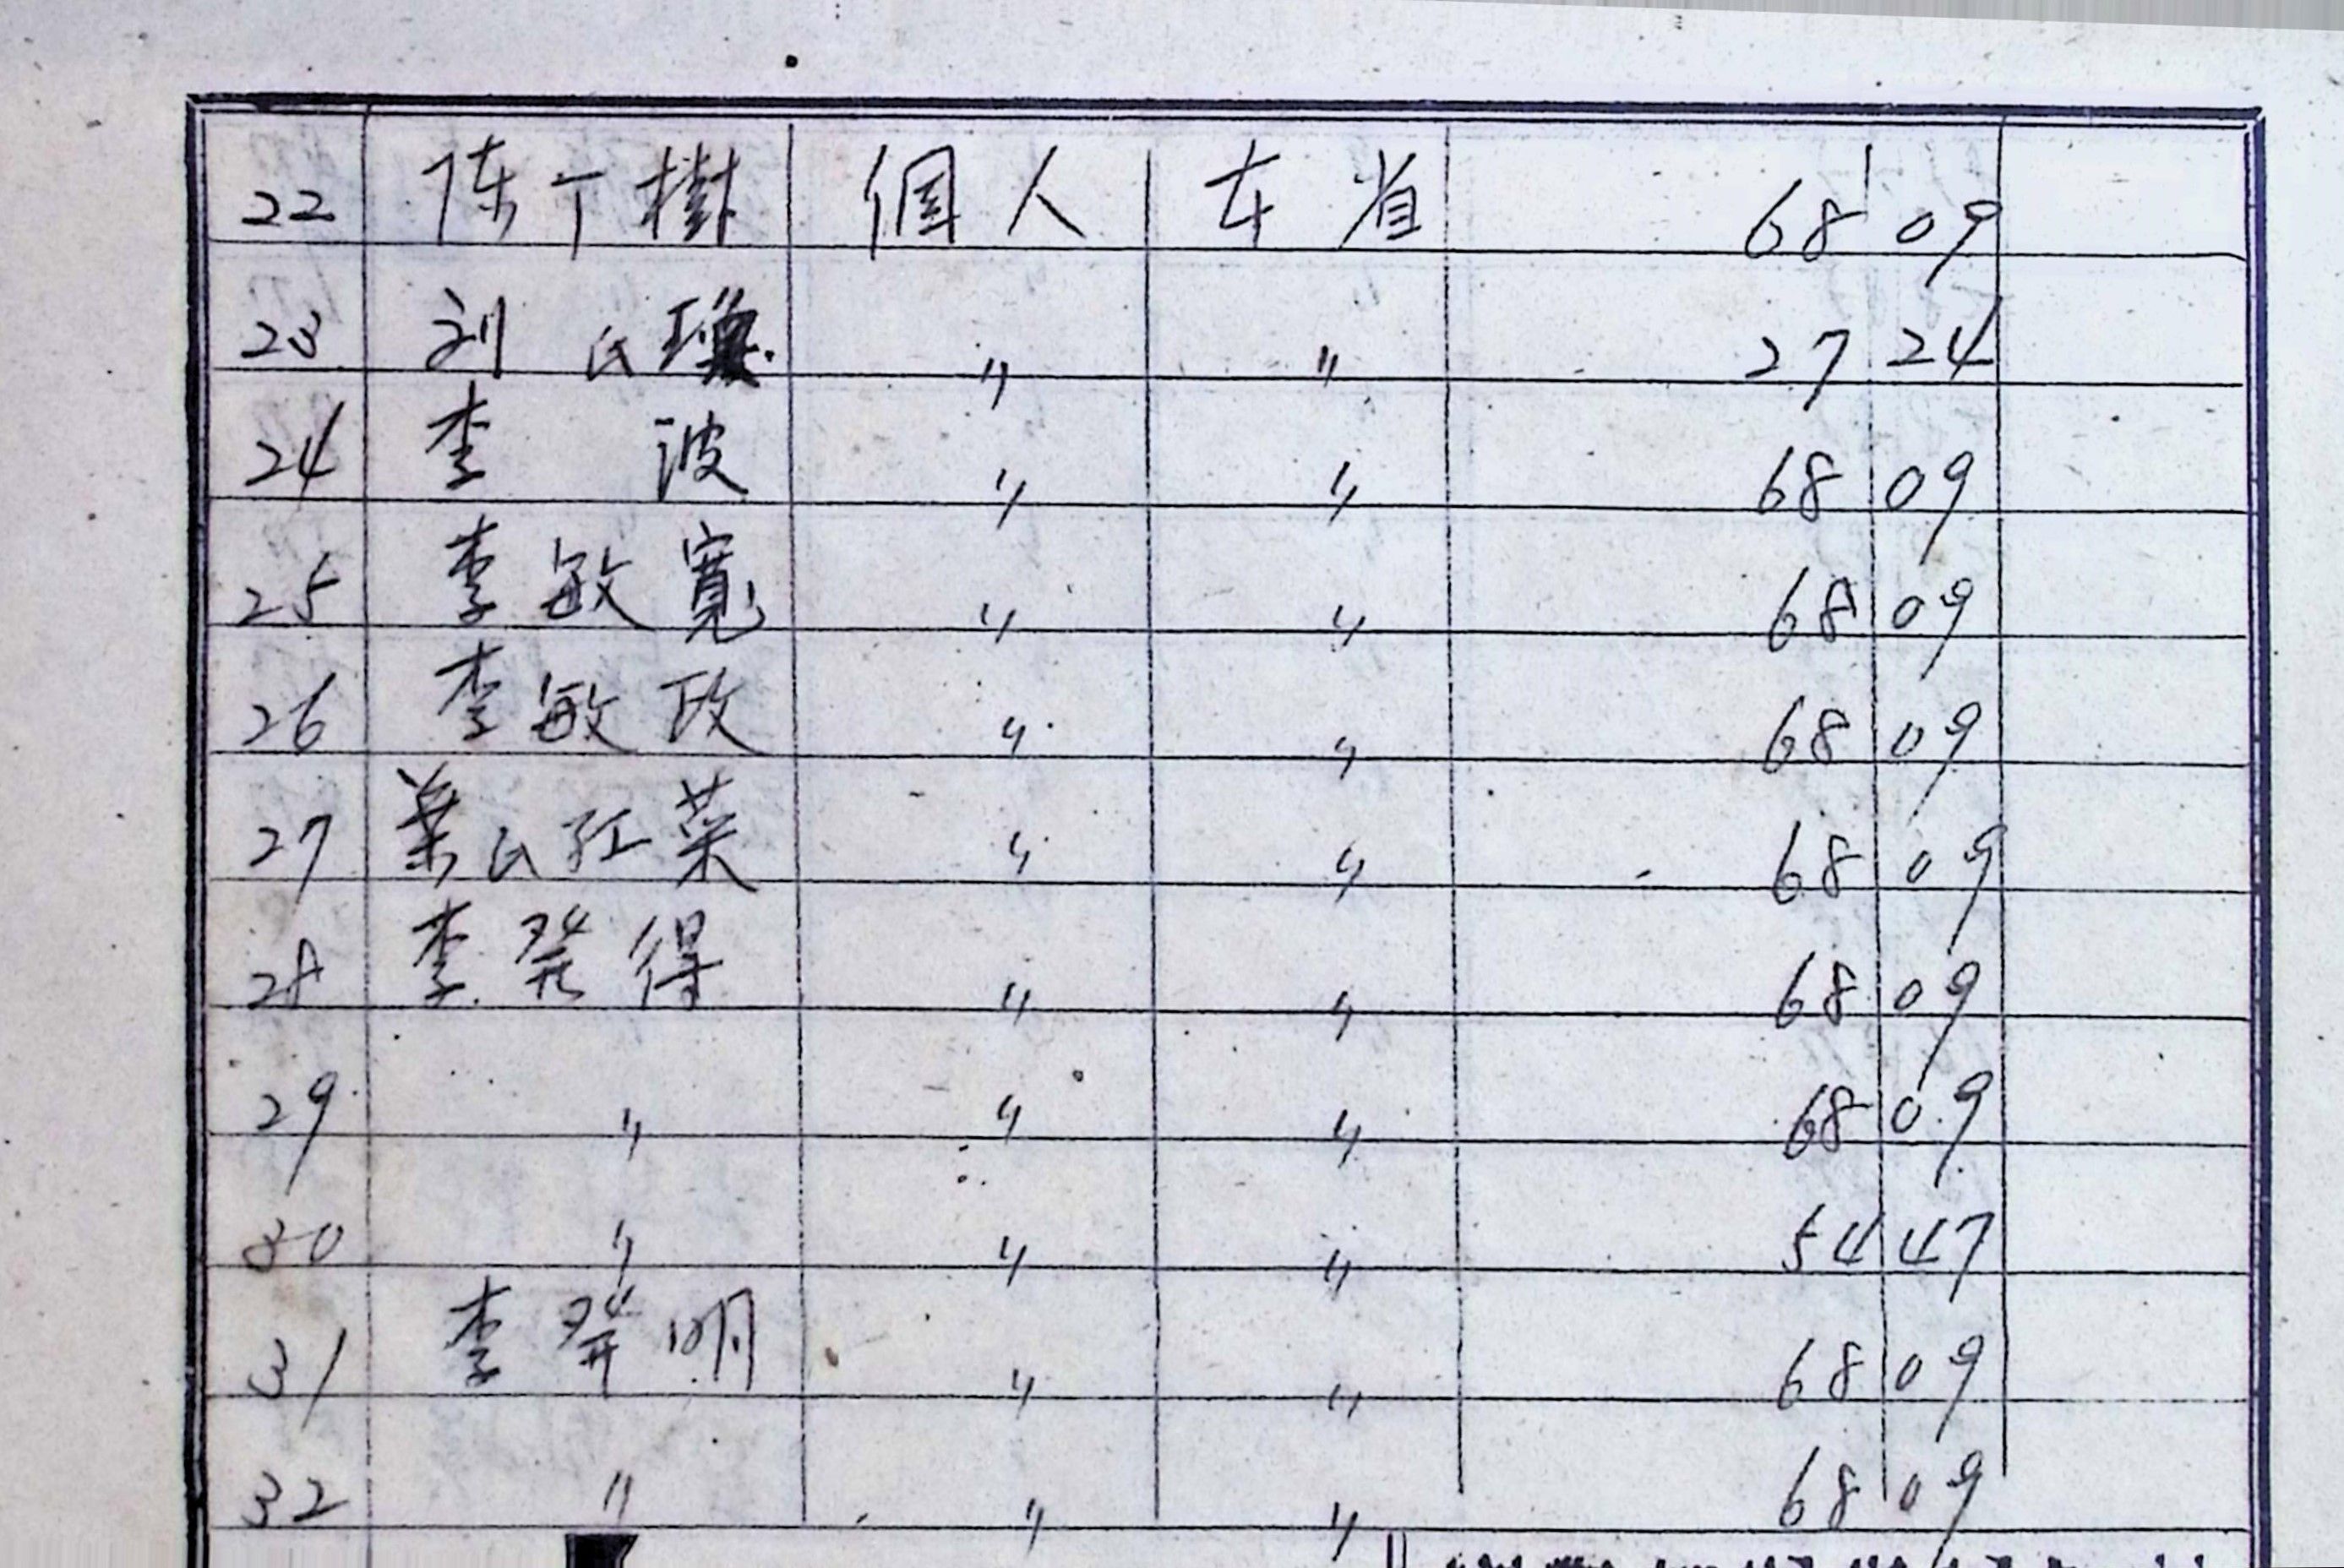 22 陈丁樹 個人 本省 68 09
23 刘氏 〃 〃 27 24
24 李 波 〃 〃 68 09
25 李敏寬 〃 〃 68 09
26 李敏政 〃 〃 68 09
27 葉氏紅菜 〃 〃 68 09
28 李登得 〃 〃 68 09
29 〃 〃 〃 68 09
30 〃 〃 〃 54 47
31 李登明 〃 〃 68 09
32 〃 〃 〃 68 09